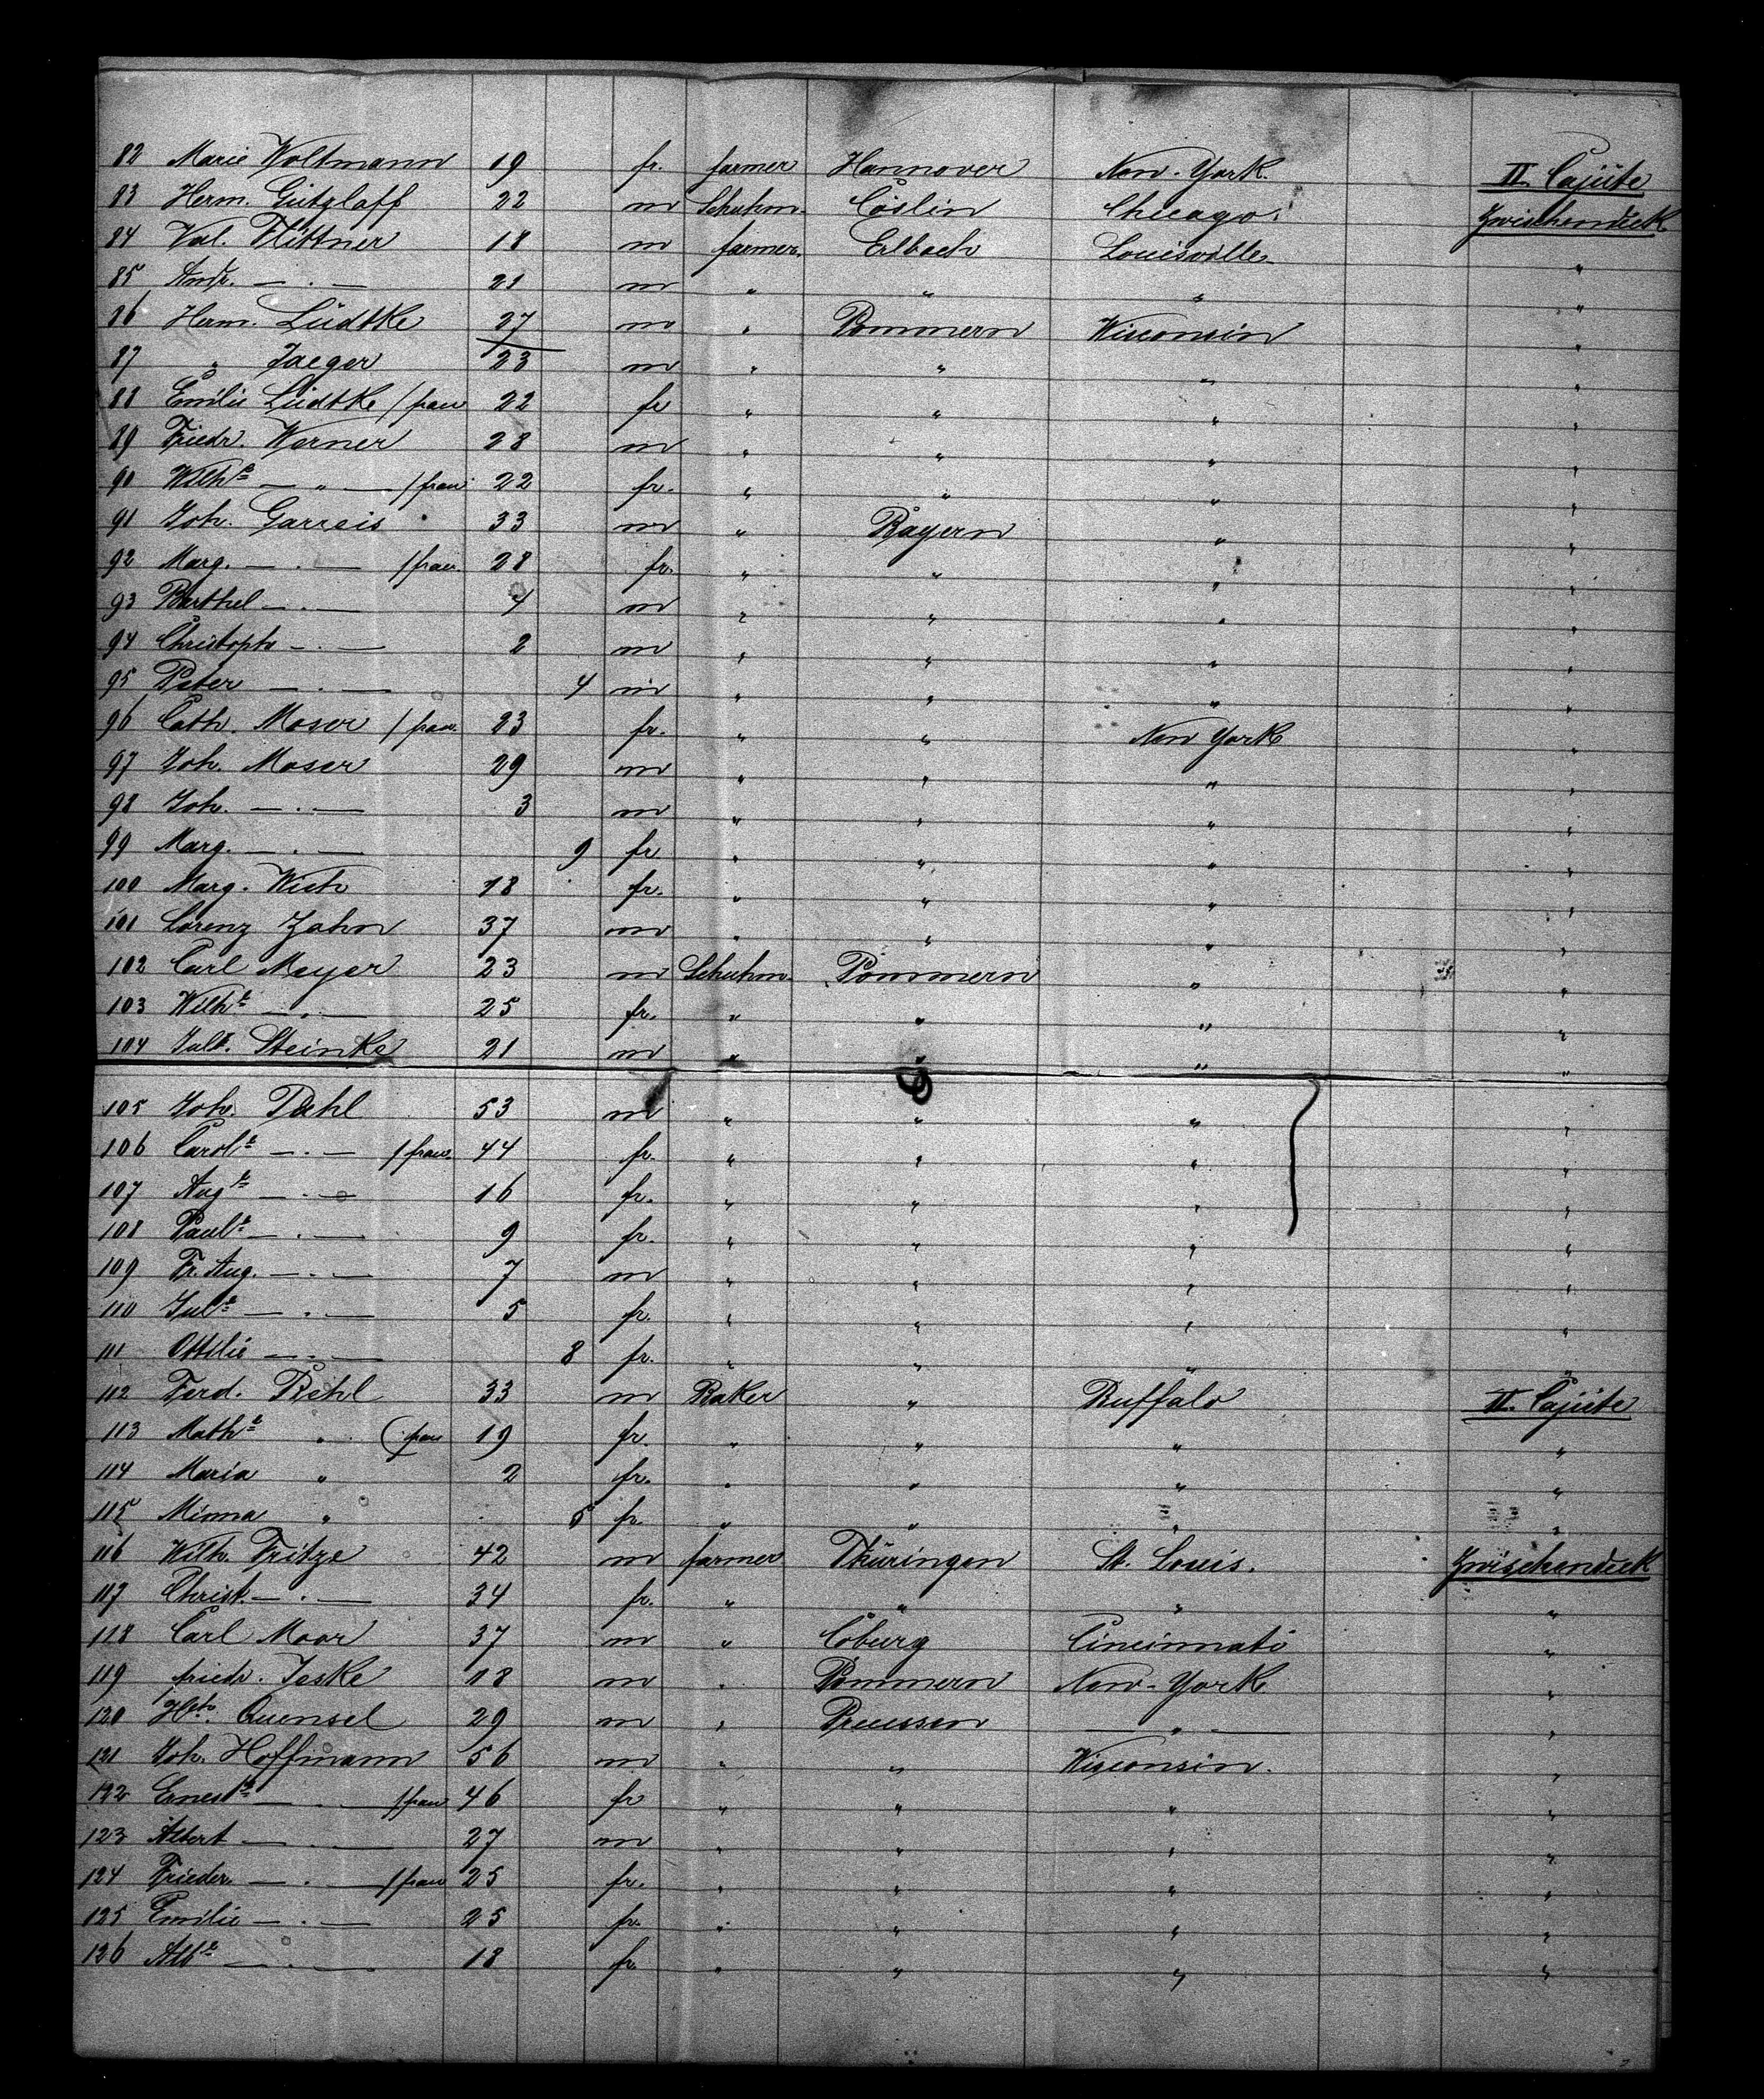 82 Marie Woltmann 19 fr. farmer Hannover New-York. II. Cajüte
83 Herm. Gützlaff 22 m Schuhm. Cöslin Chicago. Zwischendeck
84 Val. Flittner 18 m farmer. Erlbach Louisville. "
85 Andr. — . — 21 m " " " "
86 Herm. Lüdtke 27 m " Pommern Wisconsin "
87 " Jaeger 23 m " " " "
88 Emilie Lüdtke / frau 22 fr " " " "
89 Friedr. Werner 28 m " " " "
90 Wilhe — " — / frau 22 fr. " " " "
91 Joh. Garreis 33 m " Bayern " "
92 Marg. — . — / frau. 28 fr. " " " "
93 Barthel — . — 4 m " " " "
94 Christoph — . — 2 m " " " "
95 Peter — . — 4 m " " " "
96 Cath. Moser / frau. 23 fr. " " New York "
97 Joh. Moser 29 m " " " "
98 Joh. — . — 3 m " " " "
99 Marg. — . — 9 fr " " " "
100 Marg. Wich 18 fr. " " " "
101 Lorenz Zahn 37 m " " " "
102 Carl Meyer 23 m Schuhm. Pommern " "
103 Wilhe — . — 25 fr. " " " "
104 Steinke 21 m " " " "
105 Joh. Dahl 53 m " " " "
106 Carole — . — / frau. 44 fr. " " " "
107 Auge — . — 16 fr. " " " "
108 Paule — . — 9 fr. " " " "
109 Fr. Aug. — . — 7 m " " " "
110 Jule — . — 5 fr. " " " "
111 Ottilie — . — 8 fr. " " " "
112 Ferd. 33 m Baker " Buffalo II. Cajüte
113 Mathe " ( frau 19 fr. " " " "
114 Maria " 2 fr. " " " "
115 Minna " 5 fr. " " " "
116 Wilh. Fritze 42 m farmer Thüringen St. Louis. Zwischendeck
117 Christ. — . — 34 fr. " " " "
118 Carl Moor 37 m " Coburg Cincinnati "
119 friedr. Jeske 18 m " Pommern New-York "
120 Hch. Quensel 29 m " Preussen — " — "
121 Joh. Hoffmann 56 m " " Wisconsin. "
122 Erneste — . — / frau 46 fr " " " "
123 Albert — . — 27 m " " " "
124 Frieder. — . — / frau 25 fr. " " " "
125 Emilie — . — 25 fr. " " " "
126 Albe — . — 18 fr. " " " "